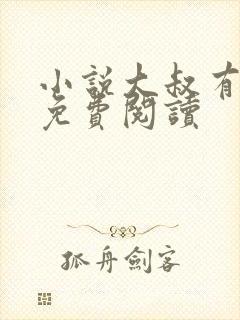 小說大叔有
免費閱讀
孤舟劍客